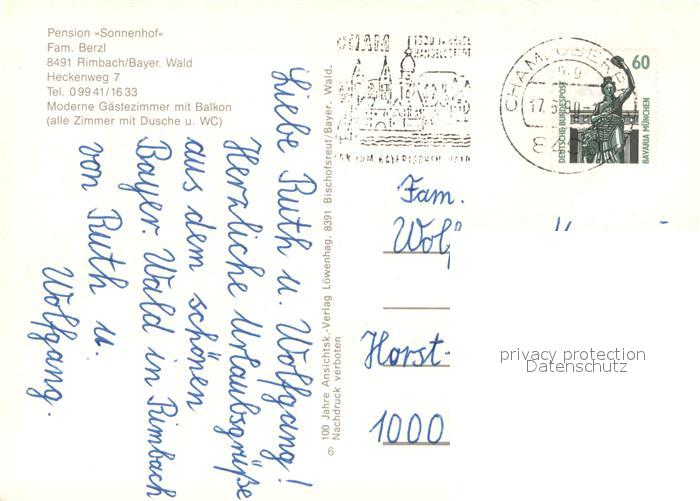 Pension »Sonnenhof«
Fam. Berzl
8491 Rimbach/Bayer. Wald
Heckenweg 7
Tel. 0 99 41/16 33
Moderne Gästezimmer mit Balkon
(alle Zimmer mit Dusche u. WC)
Liebe Ruth u. Wolfgang!
Herzliche Urlaubsgrüße
aus dem schönen
Bayer. Wald in Rimbach
von Ruth u.
Wolfgang.
100 Jahre Ansichtsk.-Verlag Löwenhag, 8391 Bischofsreut/Bayer. Wald.
Nachdruck verboten
6
CHAM
CHAM, OBERPF
17.6.
60
DEUTSCHE BUNDESPOST
BAVARIA MÜNCHEN
Fam.
Horst-
1000
privacy protection
Datenschutz